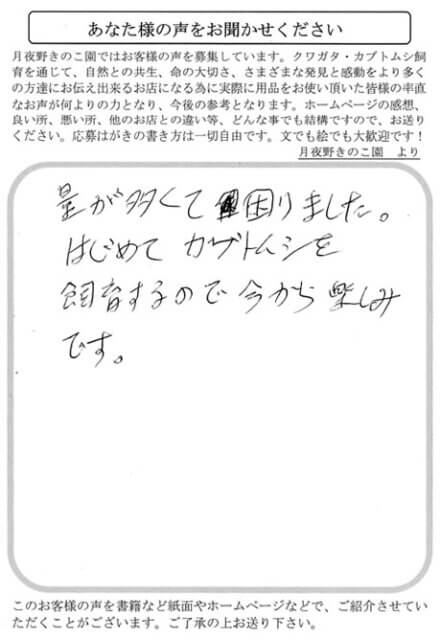 あなた様の声をお聞かせください
月夜野きのこ園ではお客様の声を募集しています。クワガタ・カブトムシ飼
育を通じて、自然との共生、命の大切さ、さまざまな発見と感動をより多く
の方達にお伝え出来るお店になる為に実際に用品をお使い頂いた皆様の率直
なお声が何よりの力となり、今後の参考となります。ホームページの感想、
良い所、悪い所、他のお店との違い等、どんな事でも結構ですので、お送り
ください。応募はがきの書き方は一切自由です。文でも絵でも大歓迎です！
月夜野きのこ園　より
量が多くて困りました。
はじめてカブトムシを
飼育するので今から楽しみ
です。
このお客様の声を書籍など紙面やホームページなどで、ご紹介させてい
ただくことがございます。ご了承の上お送り下さい。